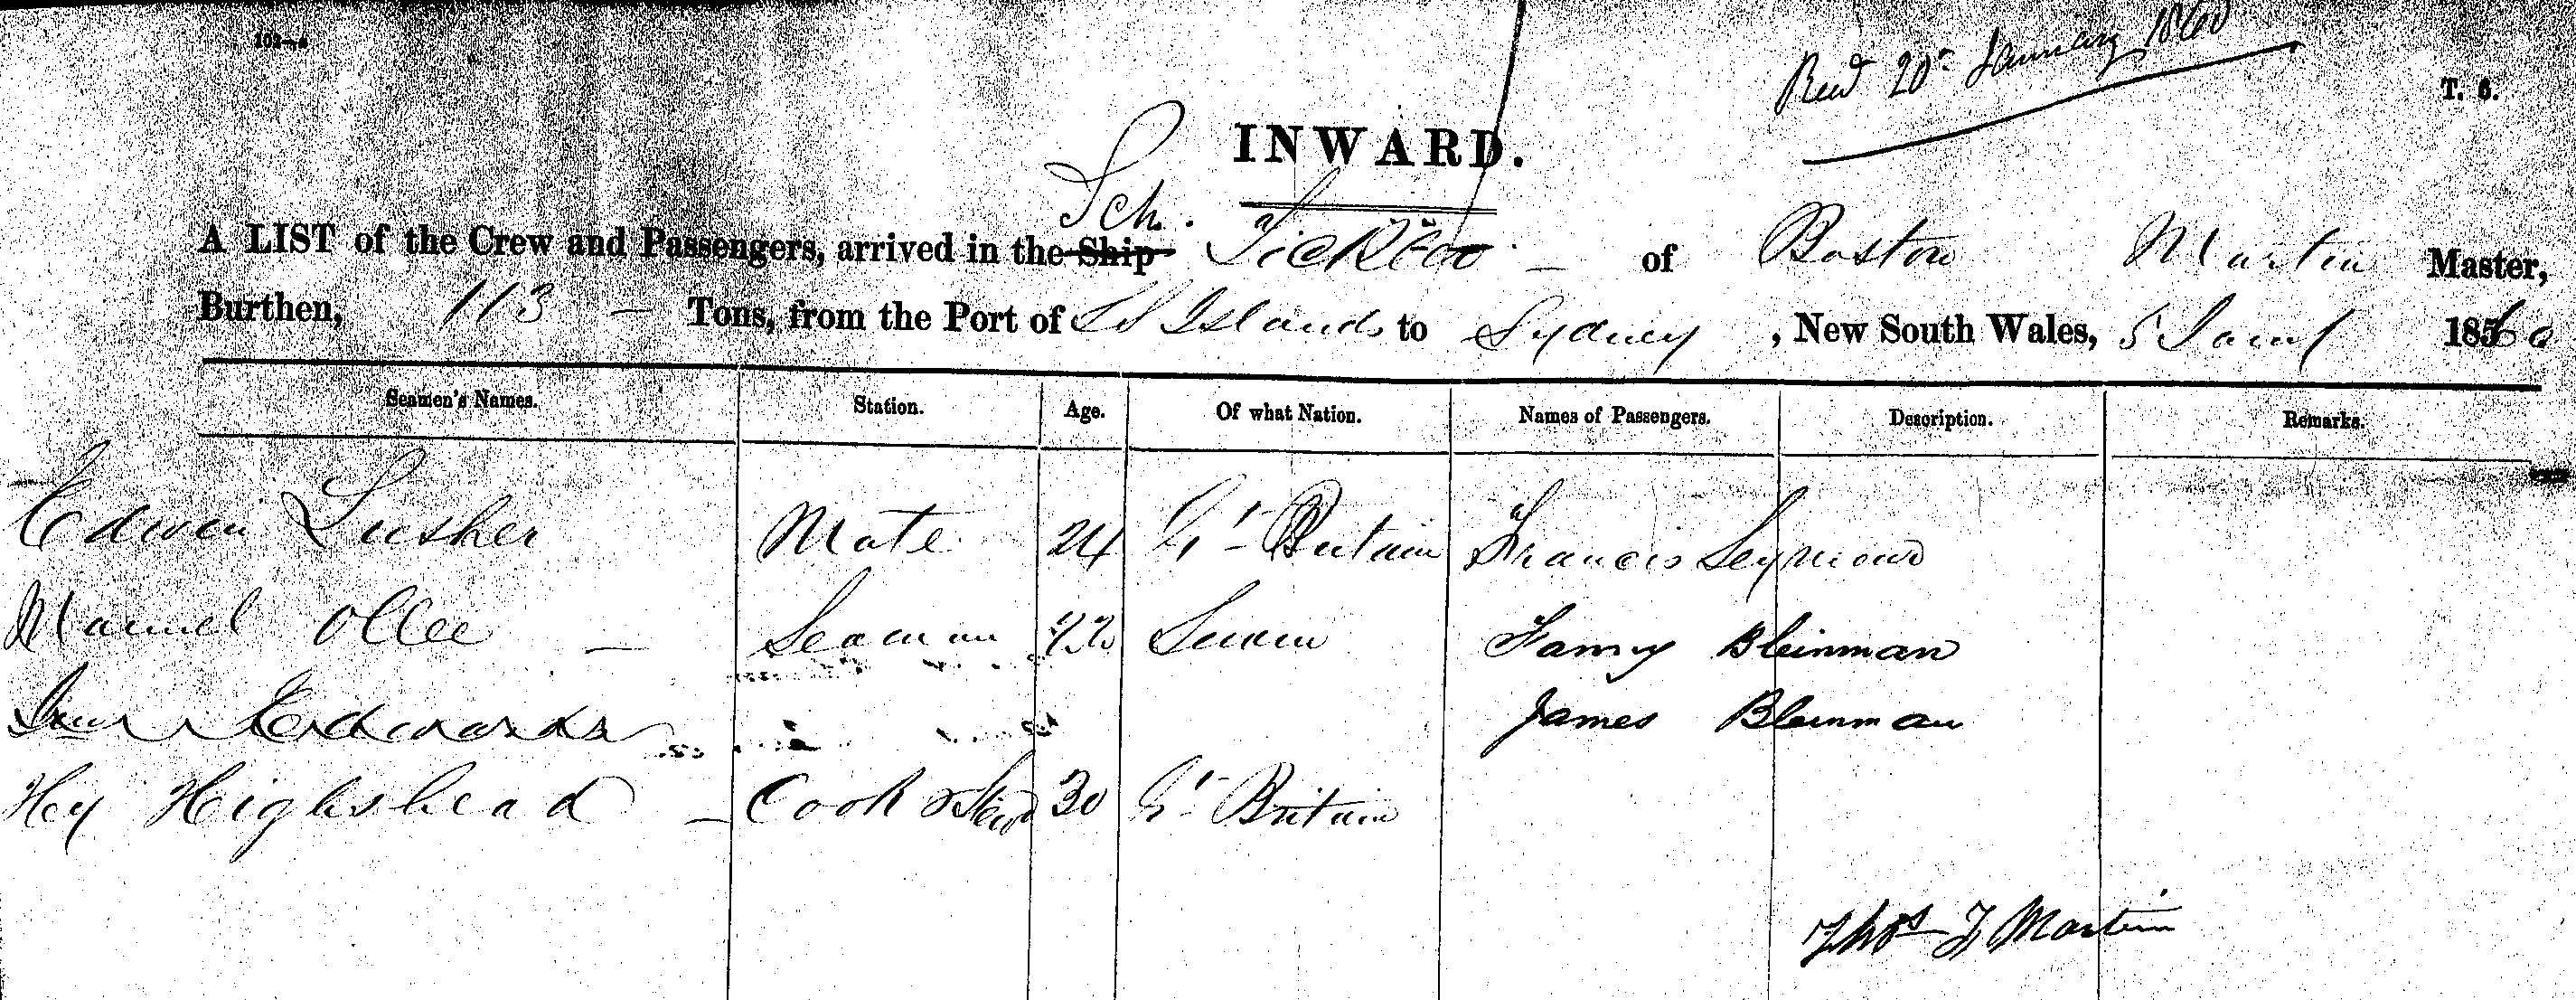 Recd 20th January 1860
T. 6.
INWARD.
Sch.
A LIST of the Crew and Passengers, arrived in the Ship of Boston Martin Master,
Burthen, 113 — Tons, from the Port of SS Islands to Sydney, New South Wales, 5 Jany 1860
Seamen's Names. Station. Age. Of what Nation. Names of Passengers. Description. Remarks.
Edwin Lusher Mate 24 Gt Britain Francis Seymour
Manuel Ollee — Seaman 22 Fanny Bleinman
Edwards James Bleinman
Hy Highshead — Cook & Stewd 30 Gt Britain
Thos F Martin